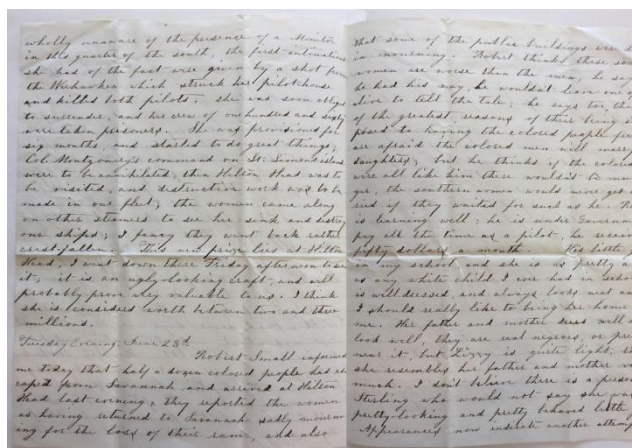 wholly unaware of the presence of a Monitor
in this quarter of the south, the first intimations
she had of the fact were given by a shot from
the Weehawken which struck her pilot-house
and killed both pilots; she was soon obliged
to surrender, and her crew of one hundred and sixty
were taken prisoners. She was provisioned for
six months and started to do great things;
Col Montgomery's command on St. Simons island
were to be annihilated, then Hilton Head was to
be visited, and destructive work was to be
made in our fleet; the women came along
on other steamers to see her sink and destroy
our ships; I fancy they went back rather
crest-fallen. This new prize lies at Hilton
Head. I went down there Friday afternoon to see
it; it is an ugly-looking craft, and will
probably prove very valuable to us. I think
she is considered worth between two and three
millions.
Tuesday Evening, June 23d
Robert Small informed
me today that half a dozen colored people had es-
caped from Savannah and arrived at Hilton
Head last evening; they reported the women
as having returned to Savannah sadly mourn-
ing for the loss of their ram, and also
that some of the public buildings were
in mourning. Robert thinks these
women are worse than the men, he says
he had his way, he wouldn't leave one
alive to tell the tale; he says too, that
of the greatest reasons of their being
posed to having the colored people free
are afraid the colored men will marry
daughters; but he thinks if the colored
were all like him there wouldn't be
ger, the southern women would never get
ried if they waited for such as he.
is learning well; he is under Government
pay all the time as a pilot, he receives
fifty dollars a month. His little
in my school, and she is as pretty a
as any white child I ever had in school
is well dressed, and always looks neat and
I should really like to bring her home
me. Her father and mother dress well
look well, they are real negroes, or
near it, but Lizzy is quite light,
she resembles her father and mother
much. I don't believe there is a person
Sterling who would not say she was
pretty-looking and pretty behaved little
Appearances now indicate another